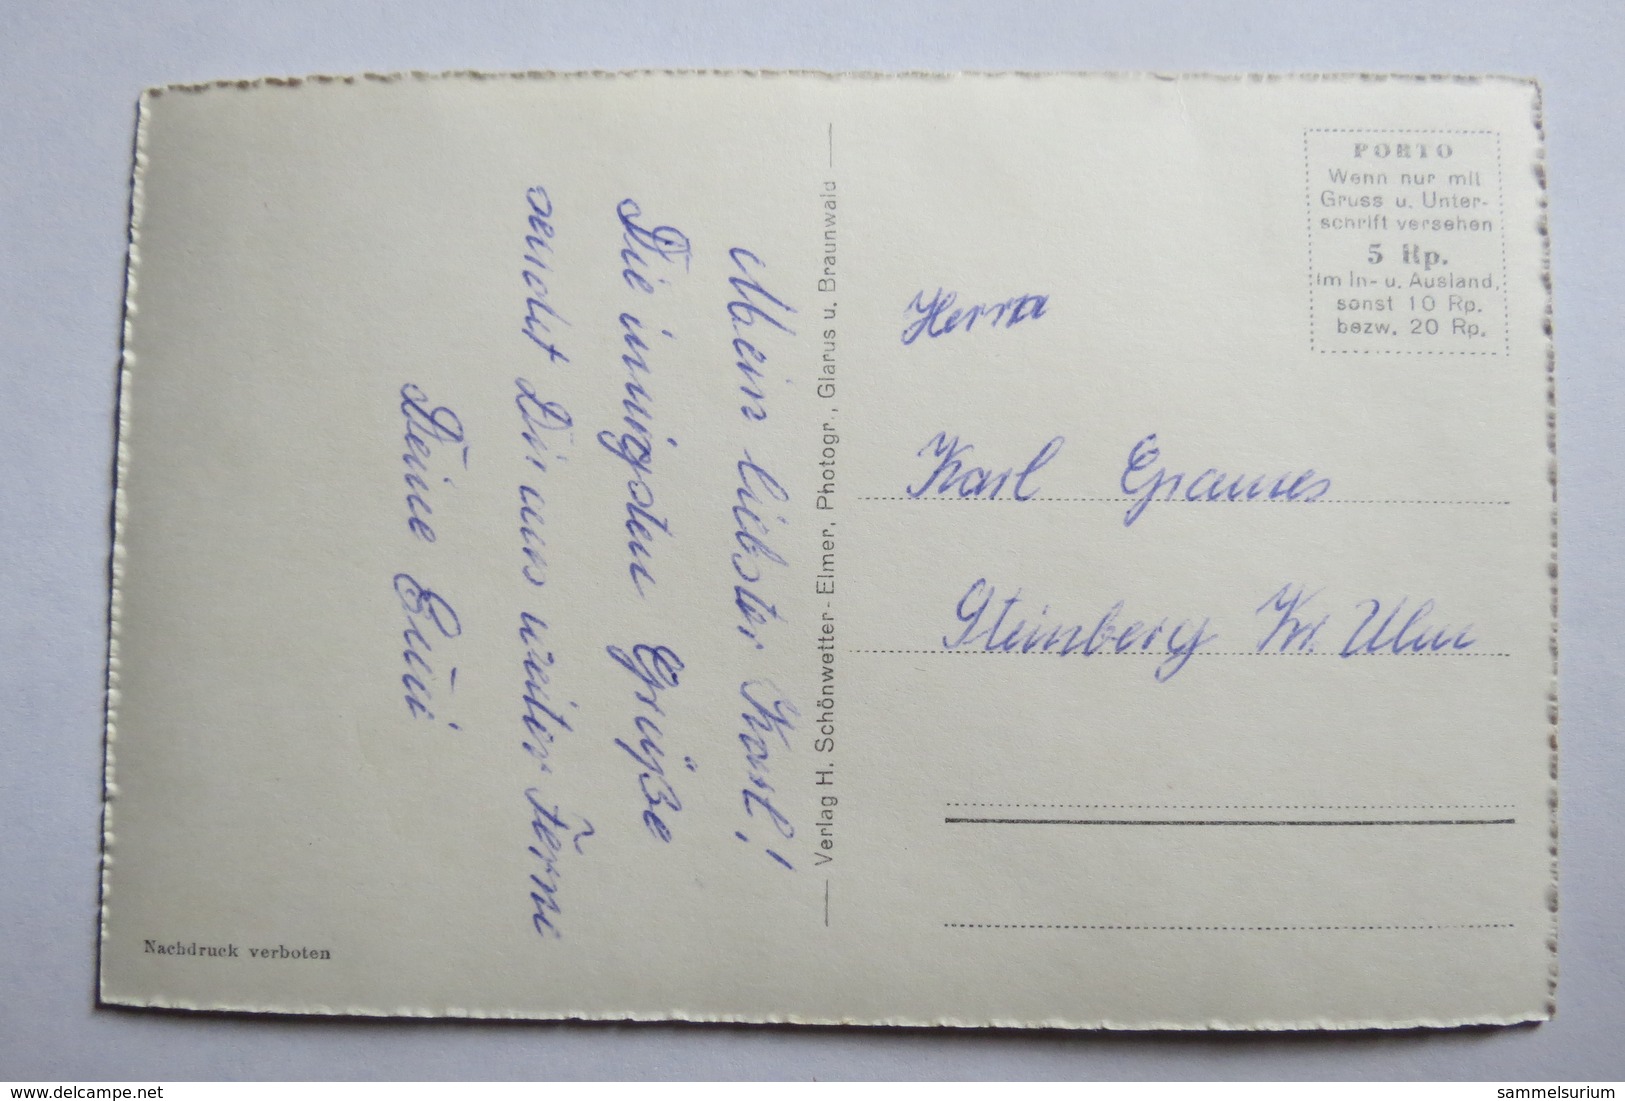 Mein liebster Karl!
Die innigsten Grüße
sendet Dir aus weiter Ferne
Deine Evi
Nachdruck verboten
Verlag H. Schönwetter-Elmer, Photogr., Glarus u. Braunwald
PORTO
Wenn nur mit
Gruss u. Unter-
schrift versehen
5 Rp.
im In- u. Ausland,
sonst 10 Rp.
bezw. 20 Rp.
Herrn
Karl
Steinberg Kr. Ulm
delcampe.net
sammelsurium